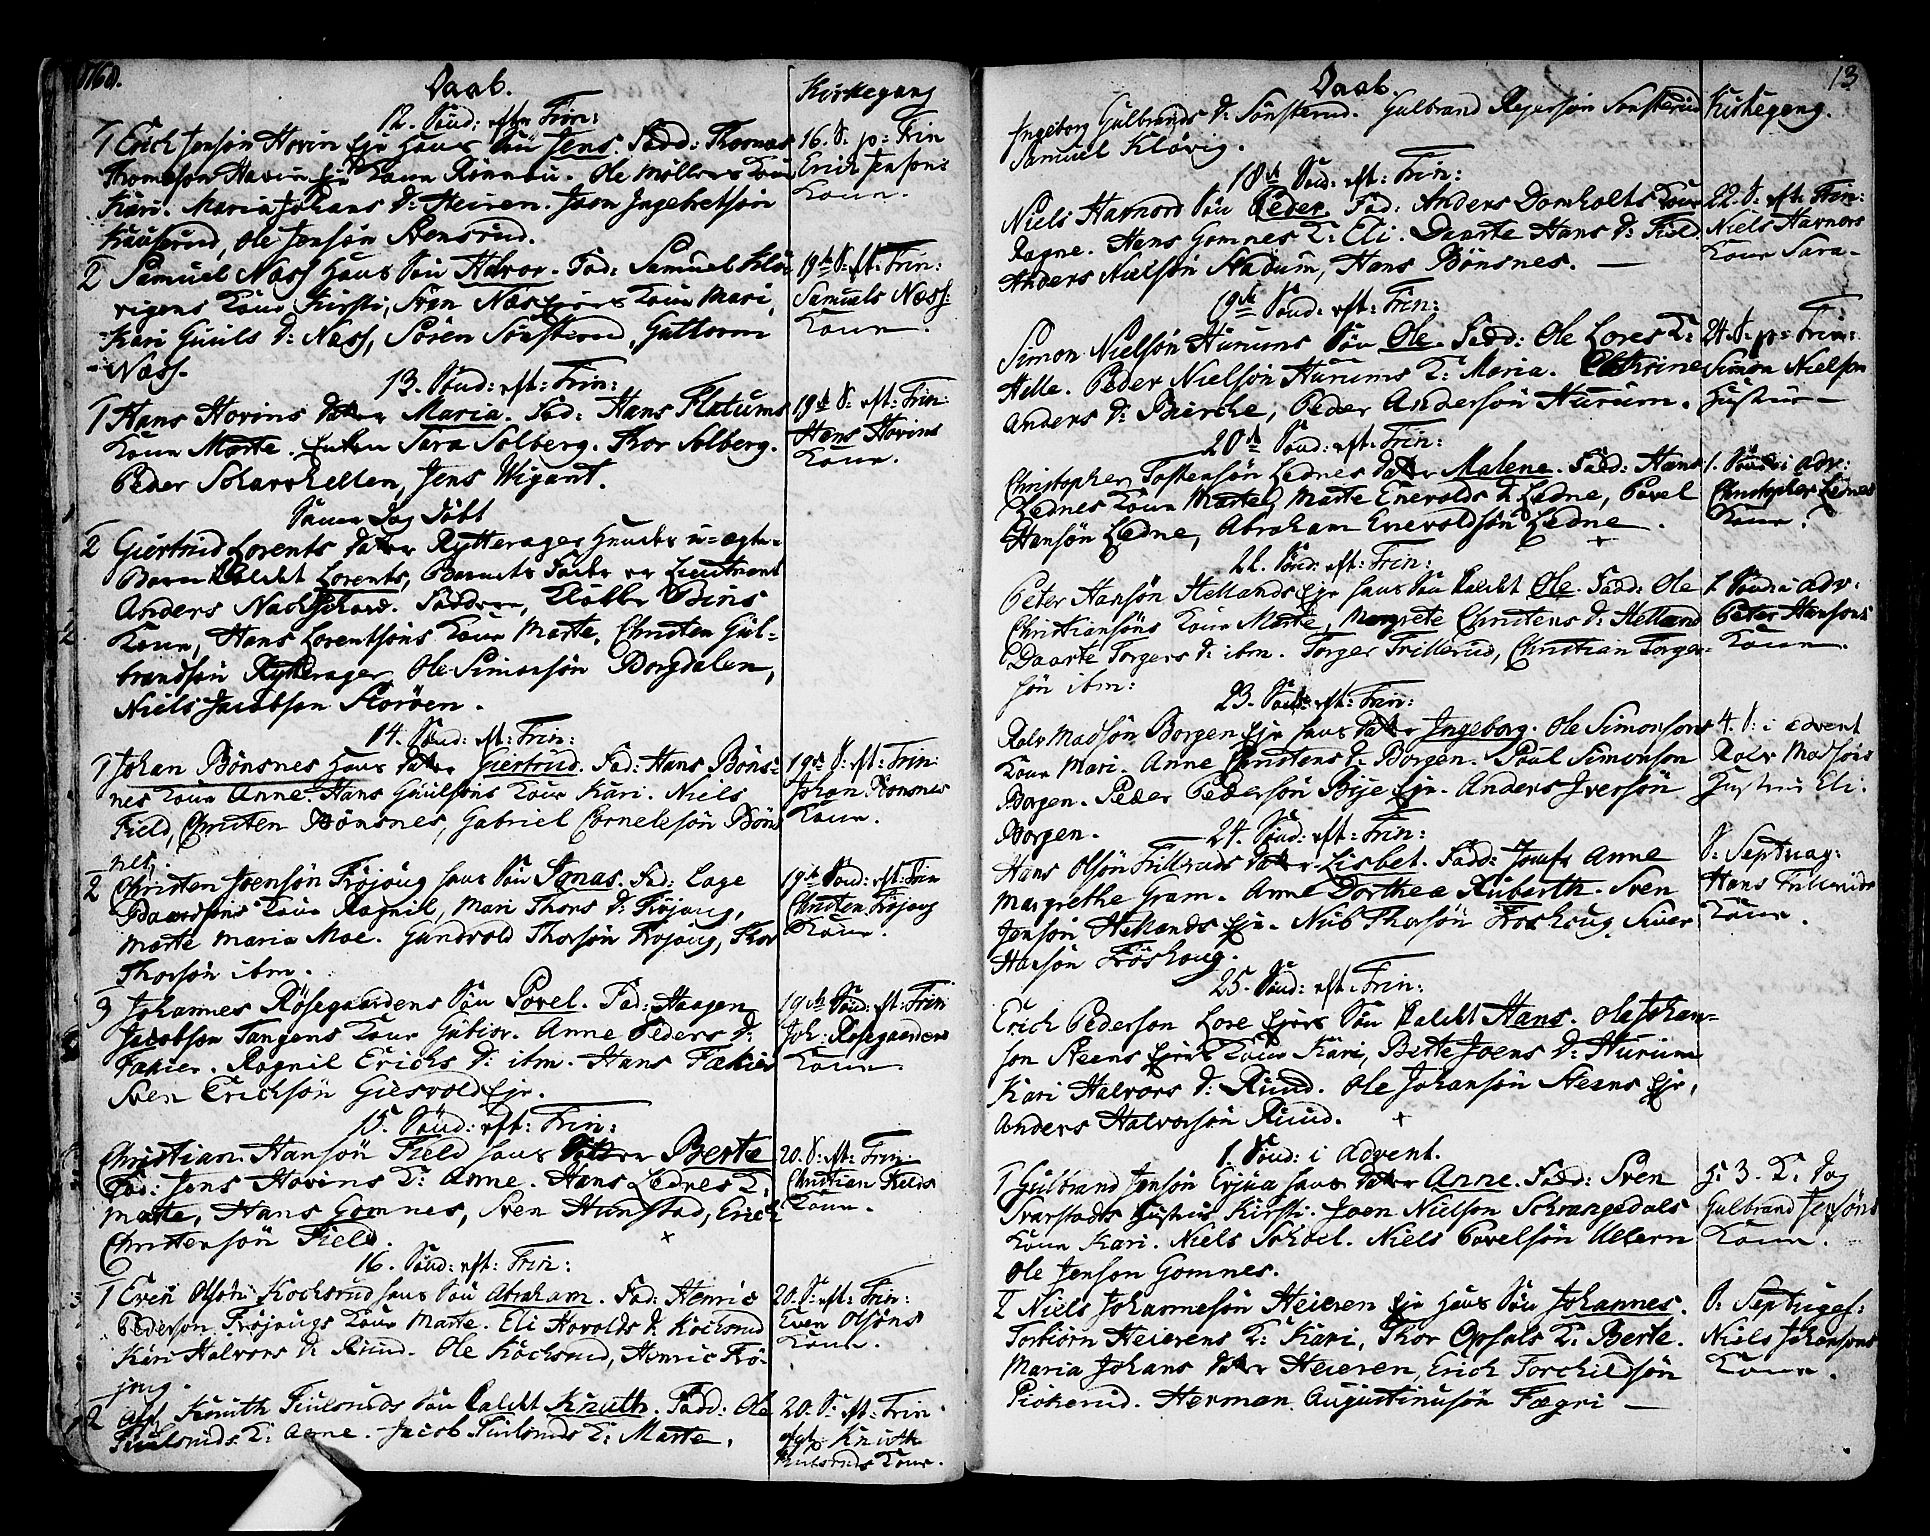 1760.
Daab.
Kirkegang
12. Sönd: efter Trin:
1 Erich Jensön Hovin Eje hans Sön Jens. Fadd: Thomas
Thomesön Havin Eje Kone Rönnou. Ole Möllers Kone
Kari. Maria Johans D: Heiren. Joen Ingebretsön
Ole Jensön Stensrud.
16. S: p: Trin
Erich Jensöns
Kone.
2 Samuel Næss hans Sön Halvor. Fad: Samuel Klö-
vigens Kone Kirsti, Sven Næs Ejers Kone Mari,
Kari Guuls D: Næss, Sören Sönsterud, Guttorm
Næss.
19de S: eft: Trin:
Samuels Næss:
Kone.
13. Sönd: eft: Trin:
1 Hans Hovins Datter Maria. Fad: Hans Flatums
Kone Marte. Enken Sara Solberg. Thor Solberg.
Peder Scharehellen, Jens Wigant.
19de S: eft: Trin:
Hans Hovins
Kone.
Samme Dag döbt
2 Giertrud Lorents Datter Rytterager hendes u-ægte
Barn kaldet Lorents, Barnets Fader er Lieutnent
Anders Faddere, Klokker
Kone, Hans Lorentsöns Kone Marte, Christen Gul-
brandsön Rytterager, Ole Simonsön Borgdalen,
Niels Jacobsön Storöen.
14. Sönd: eft: Trin:
1 Johan Bönsnes hans Datter Giertrud. Fad: Hans Böns-
nes Kone Anne. Hans Guulsöns Kone Kari. Niels
Field, Christen Bönsnes, Gabriel Cornelesön Böns
nes.
19de S: eft: Trin:
Johan Bönsnes
Kone.
2 Christen Joensön Fröjoug hans Sön Jonas. Fad: Lage
Baardsöns Kone Ragnil, Mari Thors D: Fröjoug,
Marte Maria Moe. Gundvold Thorsön Fröjoug, Thor
Thorsön ibm.
19de Sönd: eft: Trin
Christen Fröjoug
Kone.
3 Johannes Rösegaardens Sön Povel. Fad: Haagen
Jacobsön Tangens Kone Gubior. Anne Peders D:
Fækier. Ragnil Erichs D: ibm. Hans Fækier
Sven Erichsön Giesvold Eje.
19de Sönd: eft: Trin
Joh: Rosegaardens
Kone.
15. Sönd: eft: Trin:
Christian Hansön Field hans Datter Berte
Fad: Jens Hovins K: Anne. Hans Lednes K:
Marte, Hans Gomnes, Sven Hunstad, Erich
Christensön Field.
20. S: eft: Trin:
Christian Fields
Kone.
16. Sönd: eft: Trin:
1 Even Olsön Kocksrud hans Sön Abraham. Fad: Henric
Pedersön Fröjougs Kone Marte. Eli Havolds D: Kocksrud
Kari Halvors D: Ruud. Ole Kocksrud, Henric Frö-
joug.
20. S: eft: Trin:
Even Olsöns
Kone.
2 Knuth Fiulsruds Sön kaldet Knuth. Fadd: Ole
Fiulsruds K: Anne. Jacob Fiulsruds K: Marte.
20. S: eft: Trin
Knuth
Kone.
13
Daab.
Kirkegang.
Ingeborg Gulbrands D: Sönsterud. Gulbrand Rejersön Sönsterud
Samuel Klövig.
18de Sönd: eft: Trin:
Niels Harnord Sön Peder. Fad: Anders Domholts Kone
Ragne. Hans Gomnes K: Eli. Daarte Hans D: Field
Anders Nielsön Stadum, Hans Bönsnes.
22. S: eft: Trin:
Niels Harnors
Kone Sara-
19de Sönd: eft: Trin:
Simon Nielsön Hurums Sön Ole. Fadd: Ole Lores K:
Helle. Peder Nielsön Hurums K: Maria. Cathrine
Anders D: Bierche, Peder Andersön Hurum.
24. S: p: Trin:
Simon Nielsön
Hustru-
20de Sönd: eft: Trin:
Christopher Tostensön Lednes Datter Malene. Fadd: Hans
Lednes Kone Marte, Marte Enevolds D: Ledne, Povel
Hansön Ledne, Abraham Enevoldsön Ledne.
1. Sönd: i Adv:
Christopher Lednes
Kone.
22. Sönd: eft: Trin:
Peter Hansön Hellands Eje hans Sön kaldet Ole. Fadd: Ole
Christiansöns Kone Marte, Margrete Christens D: Helland
Daarte Torgers D: ibm. Torger Trillerud, Christian Torger-
sön ibm:
1. Sönd: i Adv:
Peter Hansöns
Kone.
23. Sönd: eft: Trin:
Rolv Madsön Borgen Eje hans Datter Ingeborg. Ole Simonsöns
Kone Mari. Anne Christens D: Borgen. Poul Simonsön
Borgen. Peder Pedersön Bije Eje. Anders Iversön
Borgen.
4. S: i Advent
Rolv Madsöns
Hustru Eli.
24. Sönd: eft: Trin:
Hans Olsön Trilleruds Datter Lisbet. Fadd: Jomfr Anne
Margrethe Gram. Anne Dorthea Ruberth. Sven
Jensön Hellands Eje. Niels Thorsön Fröshoug, Siver
Hansön Fröshoug.
S: Septuag:
Hans Trilleruds
Kone.
25. Sönd: eft: Trin:
Erich Pedersön Lore Ejers Sön kaldet Hans. Ole Johan-
sön Steens Ejers Kone Kari, Berte Joens D: Hurum
Kari Halvors D: Ruud. Ole Johansön Steens Eje,
Anders Halvorsön Ruud.
1. Sönd: i Advent.
1 Gulbrand Jensön Erjua hans Datter Anne. Fadd: Sven
Svarstads Hustru Kirsti. Joen Nielsön Schrangsdals
Kone Kari. Niels Schoel. Niels Povelsön Ullern
Ole Jensön Gomnes.
H: 3. K: Dag
Gulbrand Jensöns
Kone.
2 Niels Johannesön Heieren Eje hans Sön Johannes.
Torbiörn Heierens K: Kari, Thor Opsals K: Berte.
Maria Johans Datter Heieren, Erich Torchildsön
Piokerud. Herman Augustinusön Fægri
S: Septuges:
Niels Johansöns
Kone.